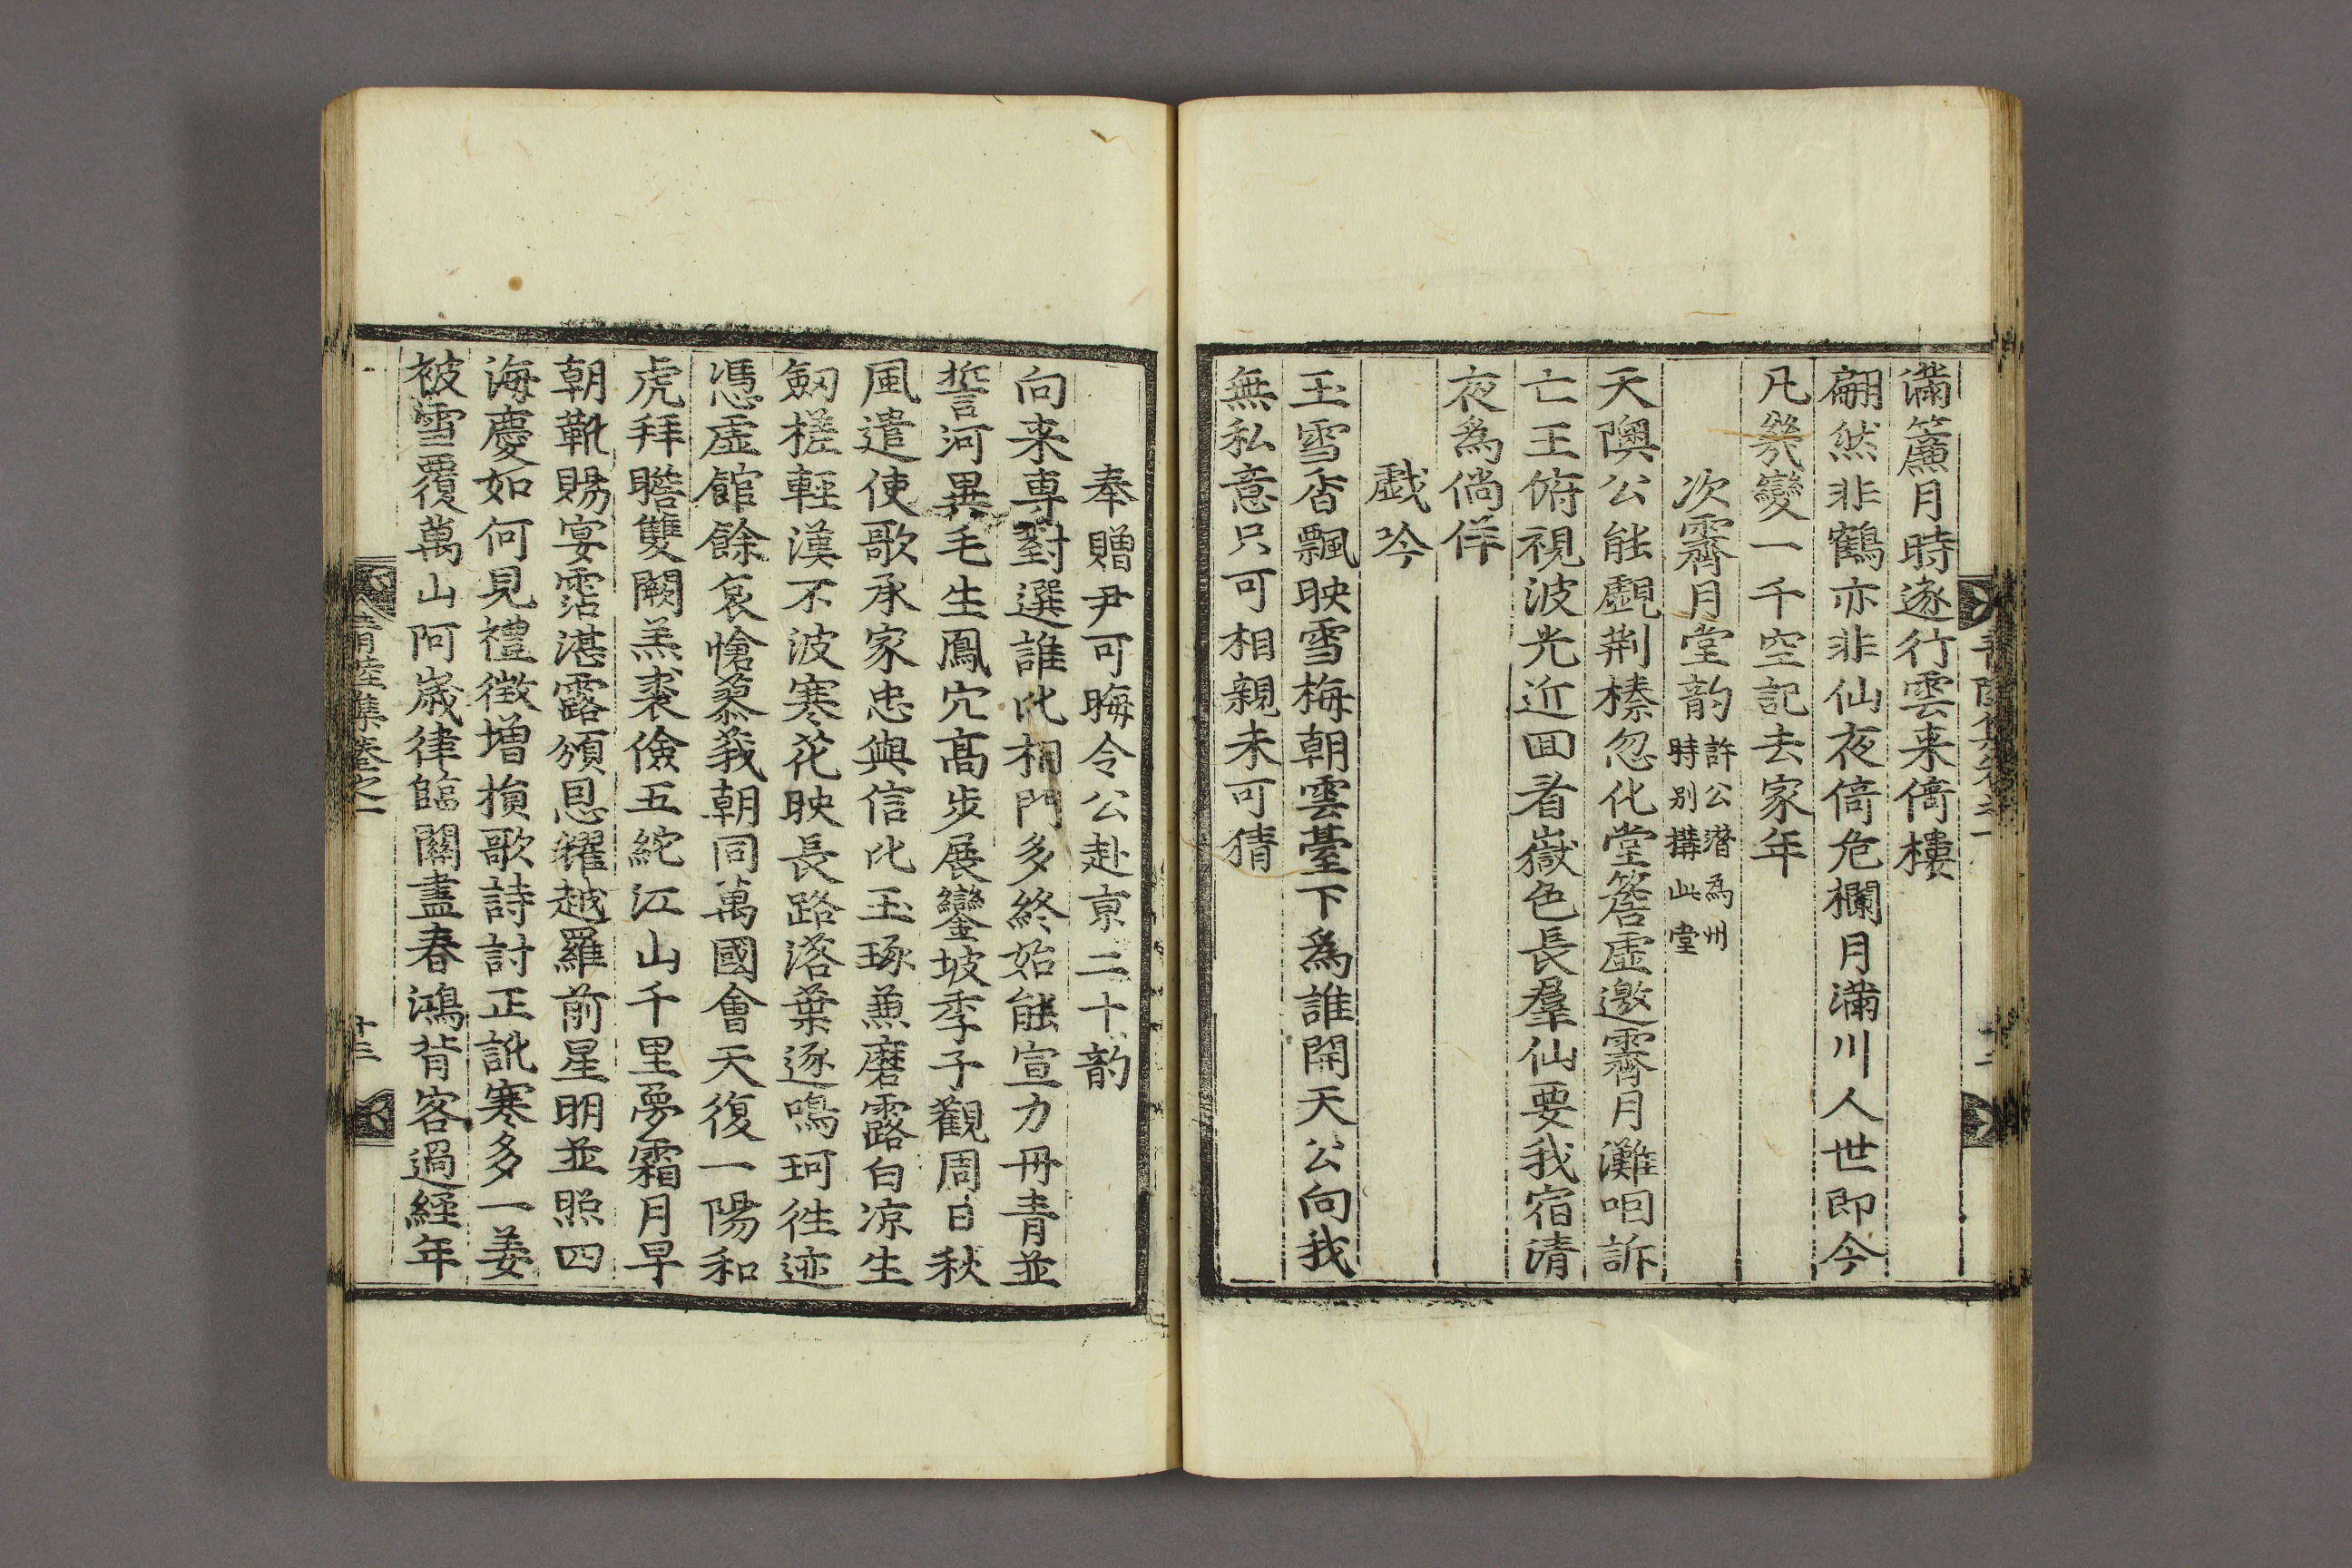 滿簾月時逐行雲来倚樓
翩然非鶴亦非仙夜倚危欄月滿川人世即今
凡幾變一千空記去家年
次霽月堂韵許公潛為州
時别搆此堂
天隩公能覷荆榛忽化堂簷虛邀霽月灘咽訴
亡王俯視波光近囬看嶽色長羣仙要我宿清
夜爲倘佯
戱吟
玉雪香飄映雪梅朝雲臺下爲誰開天公向我
無私意只可相親未可猜
奉贈尹可晦令公赴京二十韵
向来專對選誰比相門多終始能宣力丹青並
誓河異毛生鳳穴髙步展鑾坡季子觀周日秋
風遣使歌承家忠與信比玉琢兼磨露白凉生
劒槎輕漢不波寒花映長路落葉逐鳴珂徃迹
憑虛館餘哀愴蓼莪朝同萬國會天復一陽和
虎拜瞻雙闕羔裘儉五紽江山千里夢霜月早
朝靴賜宴霑湛露頒恩耀越羅前星明並照四
海慶如何見禮徴増損歌詩討正訛寒多一姜
被雪覆萬山阿歲律臨關盡春鴻背客過經年
青陸集卷之一
十三